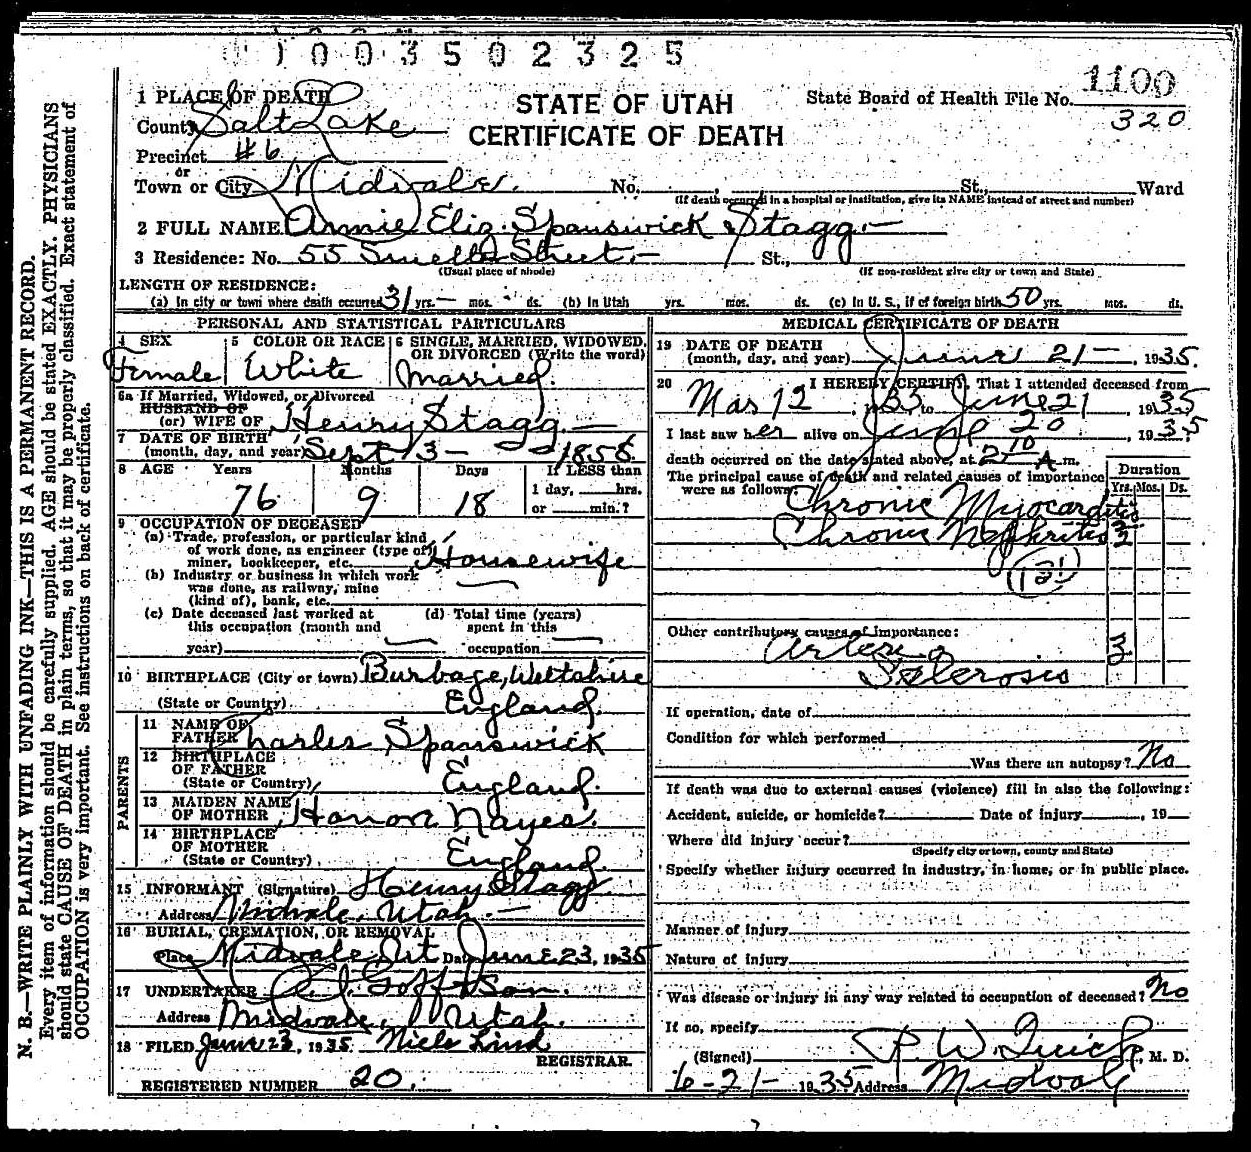 0100350 2325
1100
320
STATE OF UTAH
CERTIFICATE OF DEATH
State Board of Health File No.
1 PLACE OF DEATH
County Salt Lake
Precinct #6
or
Town or City Midvale. No. , St., Ward
(If death occurred in a hospital or institution, give its NAME instead of street and number)
2 FULL NAME Annie Eliz. Spanswick Stagg.—
3 Residence: No. 55 Smelter Street.— St.,
(Usual place of abode) (If non-resident give city or town and State)
LENGTH OF RESIDENCE:
(a) In city or town where death occurred 31 yrs. — mos. ds. (b) In Utah yrs. mos. ds. (c) In U. S., if of foreign birth 50 yrs. mos. ds.
PERSONAL AND STATISTICAL PARTICULARS
4 SEX Female
5 COLOR OR RACE White
6 SINGLE, MARRIED, WIDOWED, OR DIVORCED (Write the word) Married.
6a If Married, Widowed, or Divorced
HUSBAND OF
(or) WIFE OF Henry Stagg.—
7 DATE OF BIRTH
(month, day, and year) Sept 3 - 1858.
8 AGE Years Months Days If LESS than
76 9 18 1 day, hrs.
or min.?
9 OCCUPATION OF DECEASED
(a) Trade, profession, or particular kind
of work done, as engineer (type of)
miner, bookkeeper, etc. Housewife
(b) Industry or business in which work
was done, as railway, mine
(kind of), bank, etc.
(c) Date deceased last worked at
this occupation (month and
year)
(d) Total time (years)
spent in this
occupation
10 BIRTHPLACE (City or town) Burbage, Wiltshire
(State or Country) England.
PARENTS
11 NAME OF
FATHER Charles Spanswick
12 BIRTHPLACE
OF FATHER
(State or Country) England.
13 MAIDEN NAME
OF MOTHER Honor Nayes.
14 BIRTHPLACE
OF MOTHER
(State or Country) England.
15 INFORMANT (Signature) Henry Stagg
Address Midvale, Utah.—
16 BURIAL, CREMATION, OR REMOVAL
Place Midvale, Ut Date June 23, 1935
17 UNDERTAKER Goff & Son.
Address Midvale, Utah.
18 FILED June 23, 1935. Niels Lind
REGISTRAR.
REGISTERED NUMBER 20.
MEDICAL CERTIFICATE OF DEATH
19 DATE OF DEATH
(month, day, and year) June 21 — , 1935.
20 I HEREBY CERTIFY, That I attended deceased from
Mar 12, 1935 to June 21, 1935
I last saw her alive on June 20, 1935
death occurred on the date stated above, at 2 10 A m.
The principal cause of death and related causes of importance
were as follows:
Duration
Yrs. Mos. Ds.
Chronic Myocarditis 3
Chronic Nephritis 2
131
Other contributory causes of importance:
Arterio 3
Sclerosis
If operation, date of
Condition for which performed
Was there an autopsy? No
If death was due to external causes (violence) fill in also the following:
Accident, suicide, or homicide? Date of injury , 19
Where did injury occur?
(Specify city or town, county and State)
Specify whether injury occurred in industry, in home, or in public place.
Manner of injury
Nature of injury
Was disease or injury in any way related to occupation of deceased? No
If so, specify
(Signed) P. W. Quick, M. D.
6-21- 1935 Address Midvale
N. B.—WRITE PLAINLY WITH UNFADING INK—THIS IS A PERMANENT RECORD.
Every item of information should be carefully supplied. AGE should be stated EXACTLY. PHYSICIANS
should state CAUSE OF DEATH in plain terms, so that it may be properly classified. Exact statement of
OCCUPATION is very important. See instructions on back of certificate.